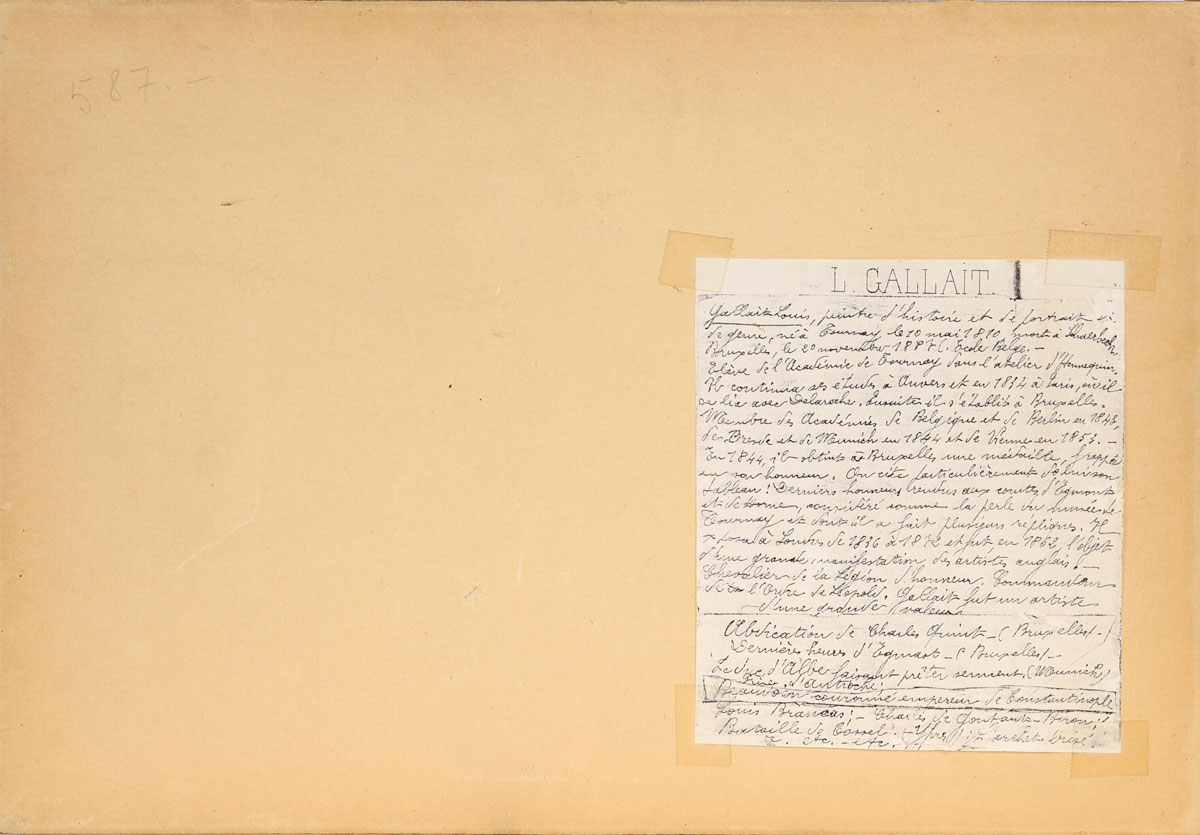 587.-
L. GALLAIT.
Gallait Louis, peintre d'histoire et de portrait et
de genre, né à Tournay, le 10 mai 1810, mort à Schaerbeek
Bruxelles, le 20 novembre 1887 (. École Belge. -
Elève de l'Académie de Tournay dans l'atelier d'Hennequin.
Il continua ses études à Anvers et en 1834 à Paris, où il
se lia avec Delaroche. Ensuite il s'établit à Bruxelles.
Membre des Académies de Belgique et de Berlin en 1843,
de Dresde et de Munich en 1844 et de Vienne en 1853. -
En 1844, il obtint à Bruxelles une médaille, frappée
en son honneur. On cite particulièrement de lui son
tableau: Derniers honneurs rendus aux comtes d'Egmont
et de Horne, considéré comme la perle du musée de
Tournay et dont il a fait plusieurs répliques. Il
exposa à Londres de 1836 à 1872 et fut, en 1862, l'objet
d'une grande manifestation des artistes anglais. -
Chevalier de la Légion d'honneur. Commandeur
de l'Ordre de Léopold. Gallait fut un artiste
d'une grande valeur.
Abdication de Charles Quint - (Bruxelles) -)
Dernières heures d'Egmont - (Bruxelles) -
Le duc d'Albe faisant prêter serment, (Munich)
Prise d'Antioche;
Beaudoin couronné empereur de Constantinople
Louis Brancas; - Charles de Gontaut-Biron;
Bataille de Cassel. - (Ypres) : L'archet brisé
etc. - etc. -